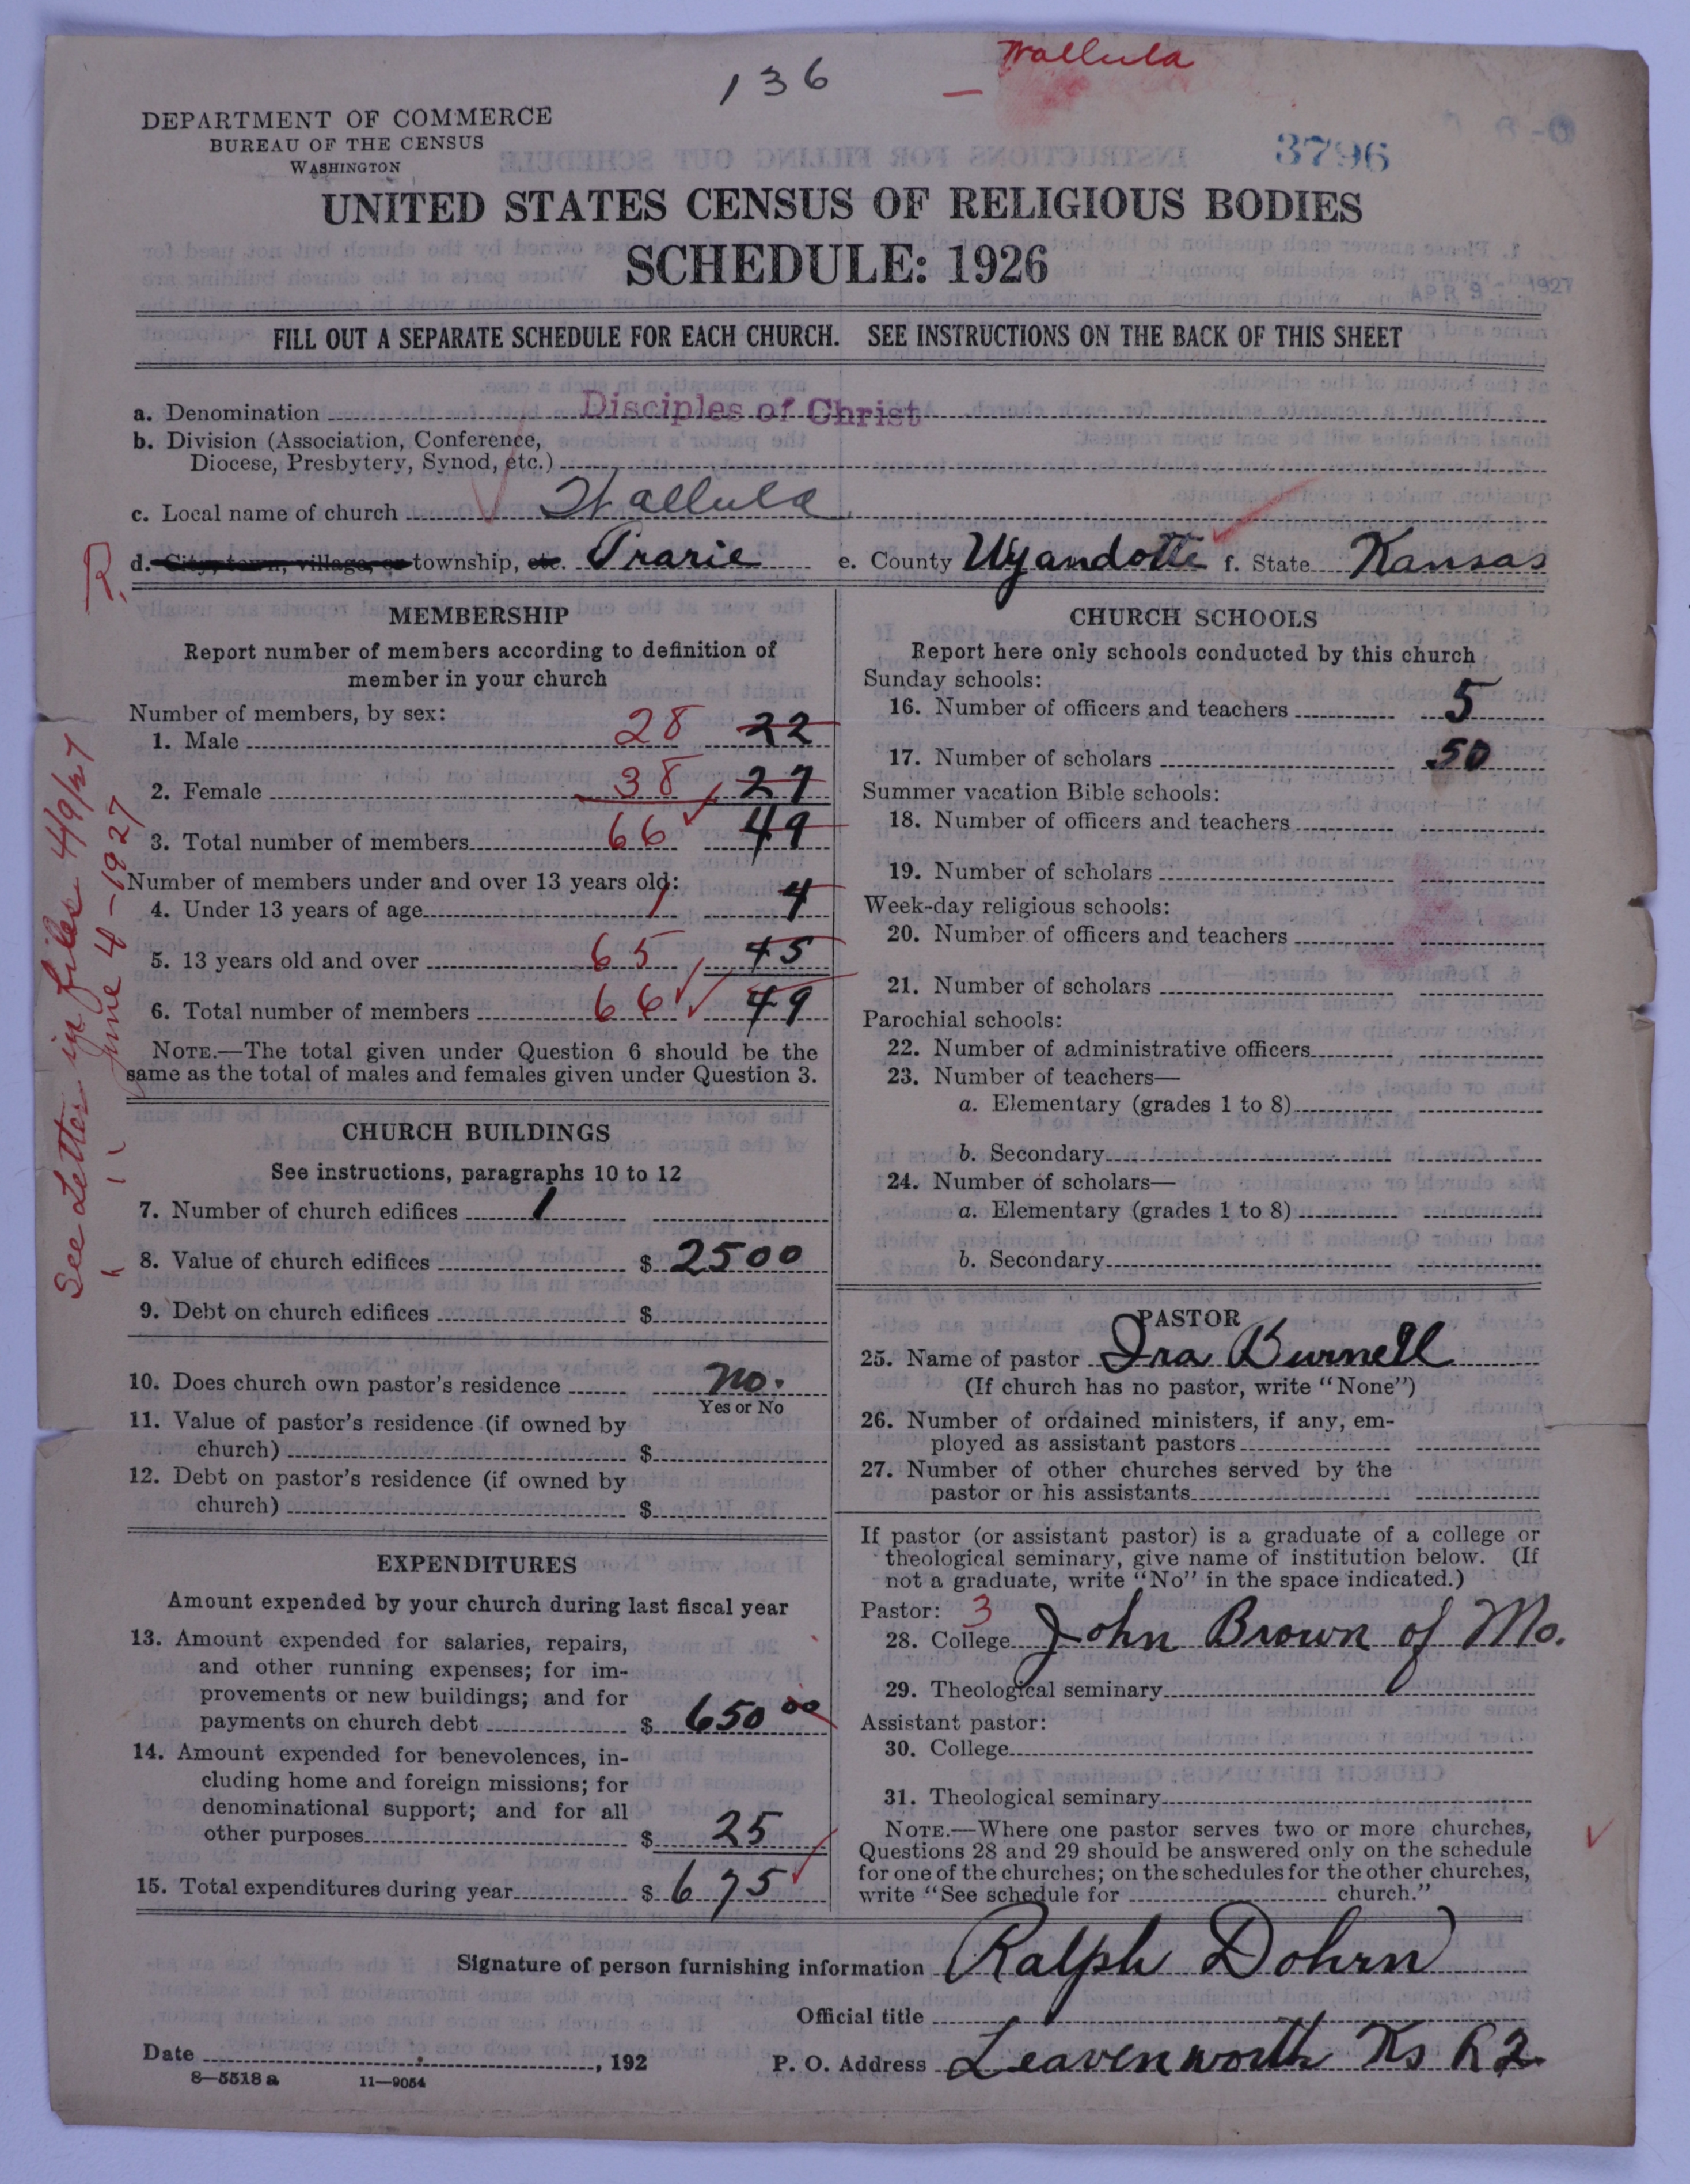 136
Wallula
DEPARTMENT OF COMMERCE
BUREAU OF THE CENSUS
WASHINGTON
3796
UNITED STATES CENSUS OF RELIGIOUS BODIES
SCHEDULE: 1926
APR 9 - 1927
FILL OUT A SEPARATE SCHEDULE FOR EACH CHURCH. SEE INSTRUCTIONS ON THE BACK OF THIS SHEET
a. Denomination Disciples of Christ
b. Division (Association, Conference,
Diocese, Presbytery, Synod, etc.)
c. Local name of church Wallula
R. d. City, town, village, or township, etc. Prarie e. County Wyandotte f. State Kansas
MEMBERSHIP
Report number of members according to definition of
member in your church
Number of members, by sex:
1. Male 28 22
2. Female 38 27
3. Total number of members 66 49
Number of members under and over 13 years old:
4. Under 13 years of age 1 4
5. 13 years old and over 65 45
6. Total number of members 66 49
NOTE.—The total given under Question 6 should be the
same as the total of males and females given under Question 3.
See Letter in files 4/9/27
" " " June 4-1927
CHURCH BUILDINGS
See instructions, paragraphs 10 to 12
7. Number of church edifices 1
8. Value of church edifices $ 2500
9. Debt on church edifices $
10. Does church own pastor's residence no.
Yes or No
11. Value of pastor's residence (if owned by
church) $
12. Debt on pastor's residence (if owned by
church) $
EXPENDITURES
Amount expended by your church during last fiscal year
13. Amount expended for salaries, repairs,
and other running expenses; for im-
provements or new buildings; and for
payments on church debt $ 650 00
14. Amount expended for benevolences, in-
cluding home and foreign missions; for
denominational support; and for all
other purposes $ 25
15. Total expenditures during year $ 675
CHURCH SCHOOLS
Report here only schools conducted by this church
Sunday schools:
16. Number of officers and teachers 5
17. Number of scholars 50
Summer vacation Bible schools:
18. Number of officers and teachers
19. Number of scholars
Week-day religious schools:
20. Number of officers and teachers
21. Number of scholars
Parochial schools:
22. Number of administrative officers
23. Number of teachers—
a. Elementary (grades 1 to 8)
b. Secondary
24. Number of scholars—
a. Elementary (grades 1 to 8)
b. Secondary
PASTOR
25. Name of pastor Ira Burnell
(If church has no pastor, write "None")
26. Number of ordained ministers, if any, em-
ployed as assistant pastors
27. Number of other churches served by the
pastor or his assistants
If pastor (or assistant pastor) is a graduate of a college or
theological seminary, give name of institution below. (If
not a graduate, write "No" in the space indicated.)
Pastor: 3
28. College John Brown of Mo.
29. Theological seminary
Assistant pastor:
30. College
31. Theological seminary
NOTE.—Where one pastor serves two or more churches,
Questions 28 and 29 should be answered only on the schedule
for one of the churches; on the schedules for the other churches,
write "See schedule for church."
Signature of person furnishing information Ralph Dohrn
Official title
Date , 192 P. O. Address Leavenworth Ks R2
8—5518 a 11—9054